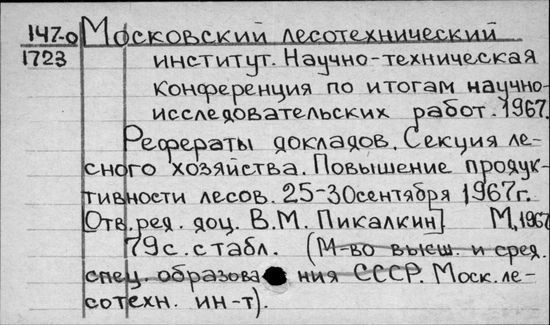 147-0 Московский лесотехнический
1723 институт. Научно-техническая
конференция по итогам научно-
исследовательских работ. 1967.
Рефераты докладов. Секция ле-
сного хозяйства. Повышение продук-
тивности лесов. 25-30 сентября 1967г.
[Отв. ред. доц. В.М. Пикалкин] М, 1967
79с. с табл. (М-во высш. и сред.
спец. образова ния СССР. Моск. ле-
сотехн. ин-т).